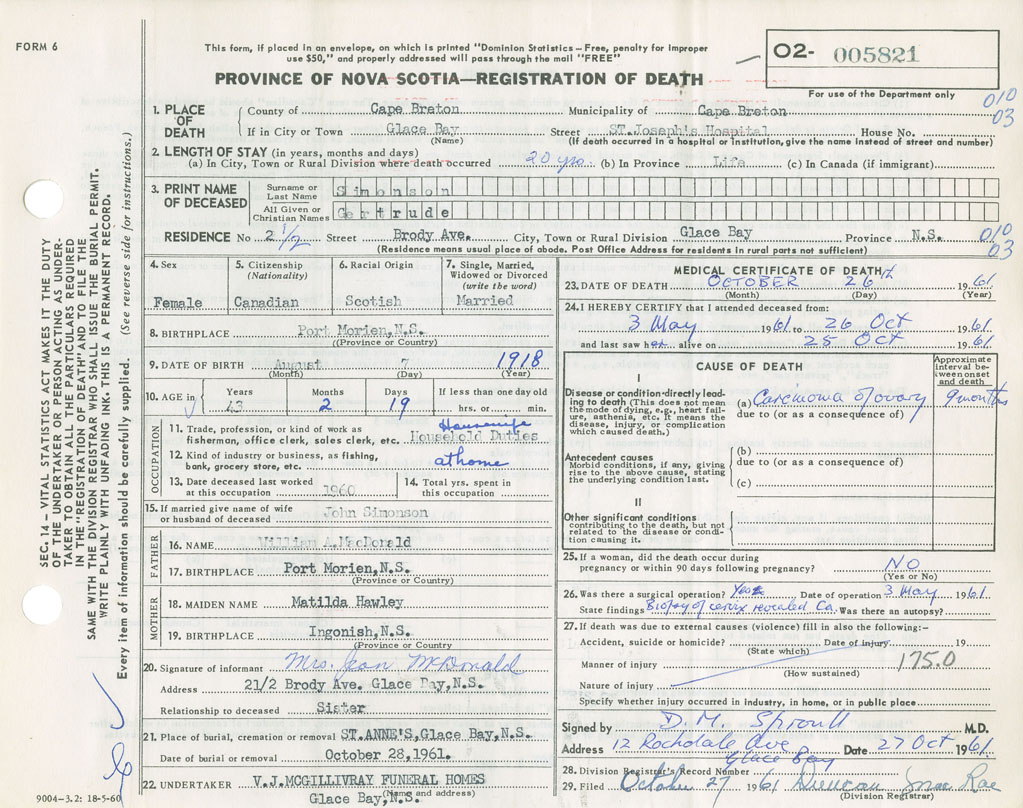 FORM 6
This form, if placed in an envelope, on which is printed "Dominion Statistics – Free, penalty for improper
use $50," and properly addressed will pass through the mail "FREE"
O2- 005821
PROVINCE OF NOVA SCOTIA—REGISTRATION OF DEATH
For use of the Department only
010
03
1. PLACE OF DEATH
County of Cape Breton Municipality of Cape Breton
If in City or Town Glace Bay Street ST.Joseph's Hospital House No.
(Name) (If death occurred in a hospital or institution, give the name instead of street and number)
2. LENGTH OF STAY (in years, months and days)
(a) In City, Town or Rural Division where death occurred 20 yrs (b) In Province Life (c) In Canada (if immigrant)
3. PRINT NAME OF DECEASED
Surname or Last Name Simonson
All Given or Christian Names Gertrude
RESIDENCE No 2 1/2 Street Brody Ave. City, Town or Rural Division Glace Bay Province N.S.
010
03
(Residence means usual place of abode. Post Office Address for residents in rural parts not sufficient)
4. Sex
Female
5. Citizenship
(Nationality)
Canadian
6. Racial Origin
Scotish
7. Single, Married,
Widowed or Divorced
(write the word)
Married
8. BIRTHPLACE Port Morien,N.S.
(Province or Country)
9. DATE OF BIRTH August 7 1918
(Month) (Day) (Year)
10. AGE in
Years 43
Months 2
Days 19
If less than one day old
hrs. or min.
OCCUPATION
11. Trade, profession, or kind of work as
Housewife
fisherman, office clerk, sales clerk, etc. Household Duties
12. Kind of industry or business, as fishing,
bank, grocery store, etc. at home
13. Date deceased last worked
at this occupation 1960
14. Total yrs. spent in
this occupation
15. If married give name of wife
or husband of deceased John Simonson
FATHER
16. NAME William A.MacDonald
17. BIRTHPLACE Port Morien,N.S.
(Province or Country)
MOTHER
18. MAIDEN NAME Matilda Hawley
19. BIRTHPLACE Ingonish,N.S.
(Province or Country)
20. Signature of informant Mrs. Jean McDonald
Address 21/2 Brody Ave. Glace Bay,N.S.
Relationship to deceased Sister
21. Place of burial, cremation or removal ST.ANNE'S,Glace Bay,N.S.
Date of burial or removal October 28,1961.
22. UNDERTAKER V.J.MCGILLIVRAY FUNERAL HOMES
(Name and address)
Glace Bay,N.S.
MEDICAL CERTIFICATE OF DEATH
23. DATE OF DEATH OCTOBER 26th 1961
(Month) (Day) (Year)
24. I HEREBY CERTIFY that I attended deceased from:
3 May 1961 to 26 Oct 1961
and last saw her alive on 25 Oct 1961
CAUSE OF DEATH
Approximate
interval between onset
and death
I
Disease or condition directly leading to death (This does not mean
the mode of dying, e.g., heart failure, asthenia, etc. It means the
disease, injury, or complication
which caused death.)
(a) Carcinoma of ovary 9 months
due to (or as a consequence of)
Antecedent causes
Morbid conditions, if any, giving
rise to the above cause, stating
the underlying condition last.
(b)
due to (or as a consequence of)
(c)
II
Other significant conditions
contributing to the death, but not
related to the disease or condition causing it.
25. If a woman, did the death occur during
pregnancy or within 90 days following pregnancy? NO
(Yes or No)
26. Was there a surgical operation? Yes Date of operation 3 May 1961
State findings Biopsy of cervix revealed Ca. Was there an autopsy?
27. If death was due to external causes (violence) fill in also the following:–
Accident, suicide or homicide? Date of injury 19
(State which)
Manner of injury 175.0
(How sustained)
Nature of injury
Specify whether injury occurred in industry, in home, or in public place
Signed by D. M. Sproull M.D.
Address 12 Rochdale Ave Date 27 Oct 1961
Glace Bay
28. Division Registrar's Record Number
29. Filed October 27 1961 Duncan MacRae
(Division Registrar)
SEC. 14 – VITAL STATISTICS ACT MAKES IT THE DUTY
OF THE UNDERTAKER OR PERSON ACTING AS UNDERTAKER TO OBTAIN ALL THE PARTICULARS REQUIRED
IN THE "REGISTRATION OF DEATH" AND TO FILE THE
SAME WITH THE DIVISION REGISTRAR WHO SHALL ISSUE THE BURIAL PERMIT.
WRITE PLAINLY WITH UNFADING INK. THIS IS A PERMANENT RECORD.
Every item of information should be carefully supplied. (See reverse side for instructions.)
9004-3.2: 18-5-60